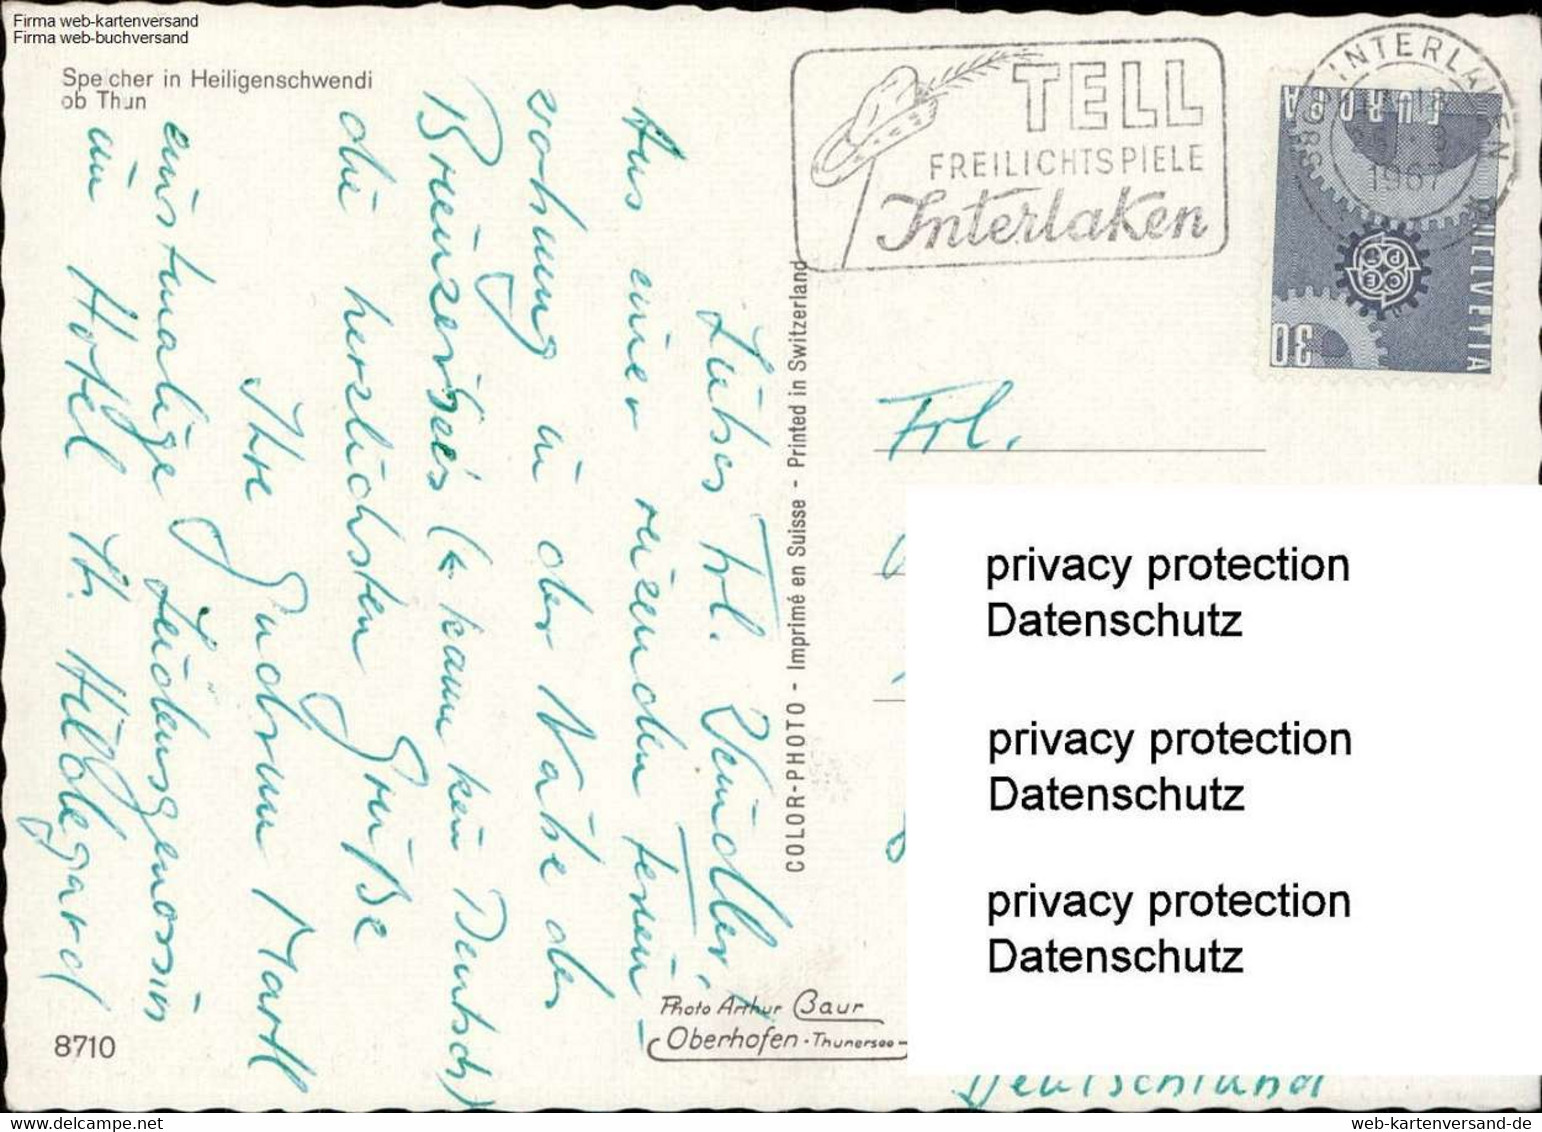 Firma web-kartenversand
Firma web-buchversand
Speicher in Heiligenschwendi
ob Thun
TELL
FREILICHTSPIELE
Interlaken
INTERLAKEN
1967
EUROPA
CEPT
HELVETIA
30
Liebes Frl.
Aus einer reizenden Ferien-
wohnung in der Nähe des
Brienzersees (← kaum kein Deutsch)
die herzlichsten Grüße
Ihre Gudrun Martl
einstmalige Leidensgenossin
im Hotel St. Hildegard
COLOR-PHOTO - Imprimé en Suisse - Printed in Switzerland
Frl.
privacy protection
Datenschutz
privacy protection
Datenschutz
privacy protection
Datenschutz
Deutschland
Photo Arthur Baur
Oberhofen - Thunersee -
8710
web-kartenversand-de